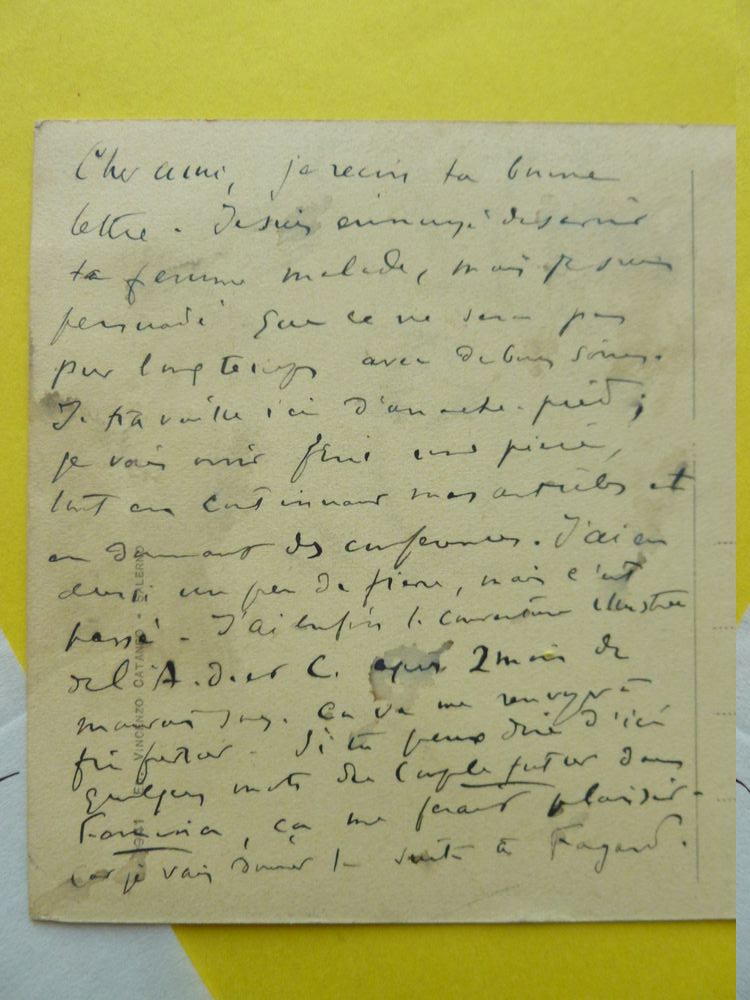 Cher ami, je reçois ta bonne
lettre. Je suis ennuyé de savoir
ta femme malade, mais je suis
persuadé que ce ne sera pas
pour longtemps avec de bons soins.
Je travaille ici d'arrache-pied ;
je vais avoir fini une pièce,
tout en continuant mes articles et
en donnant des conférences. J'ai eu
aussi un peu de fièvre, mais c'est
passé. J'ai enfin la couverture illustrée
del A. d. et C. après 2 mois de
Ça va me renvoyer à
fin février. Si tu peux dire d'ici
quelques mots du Couple futur dans
Femina, ça me ferait plaisir
car je vais donner la suite à Fayard.
VINCENZO CATANEO - SALERNO